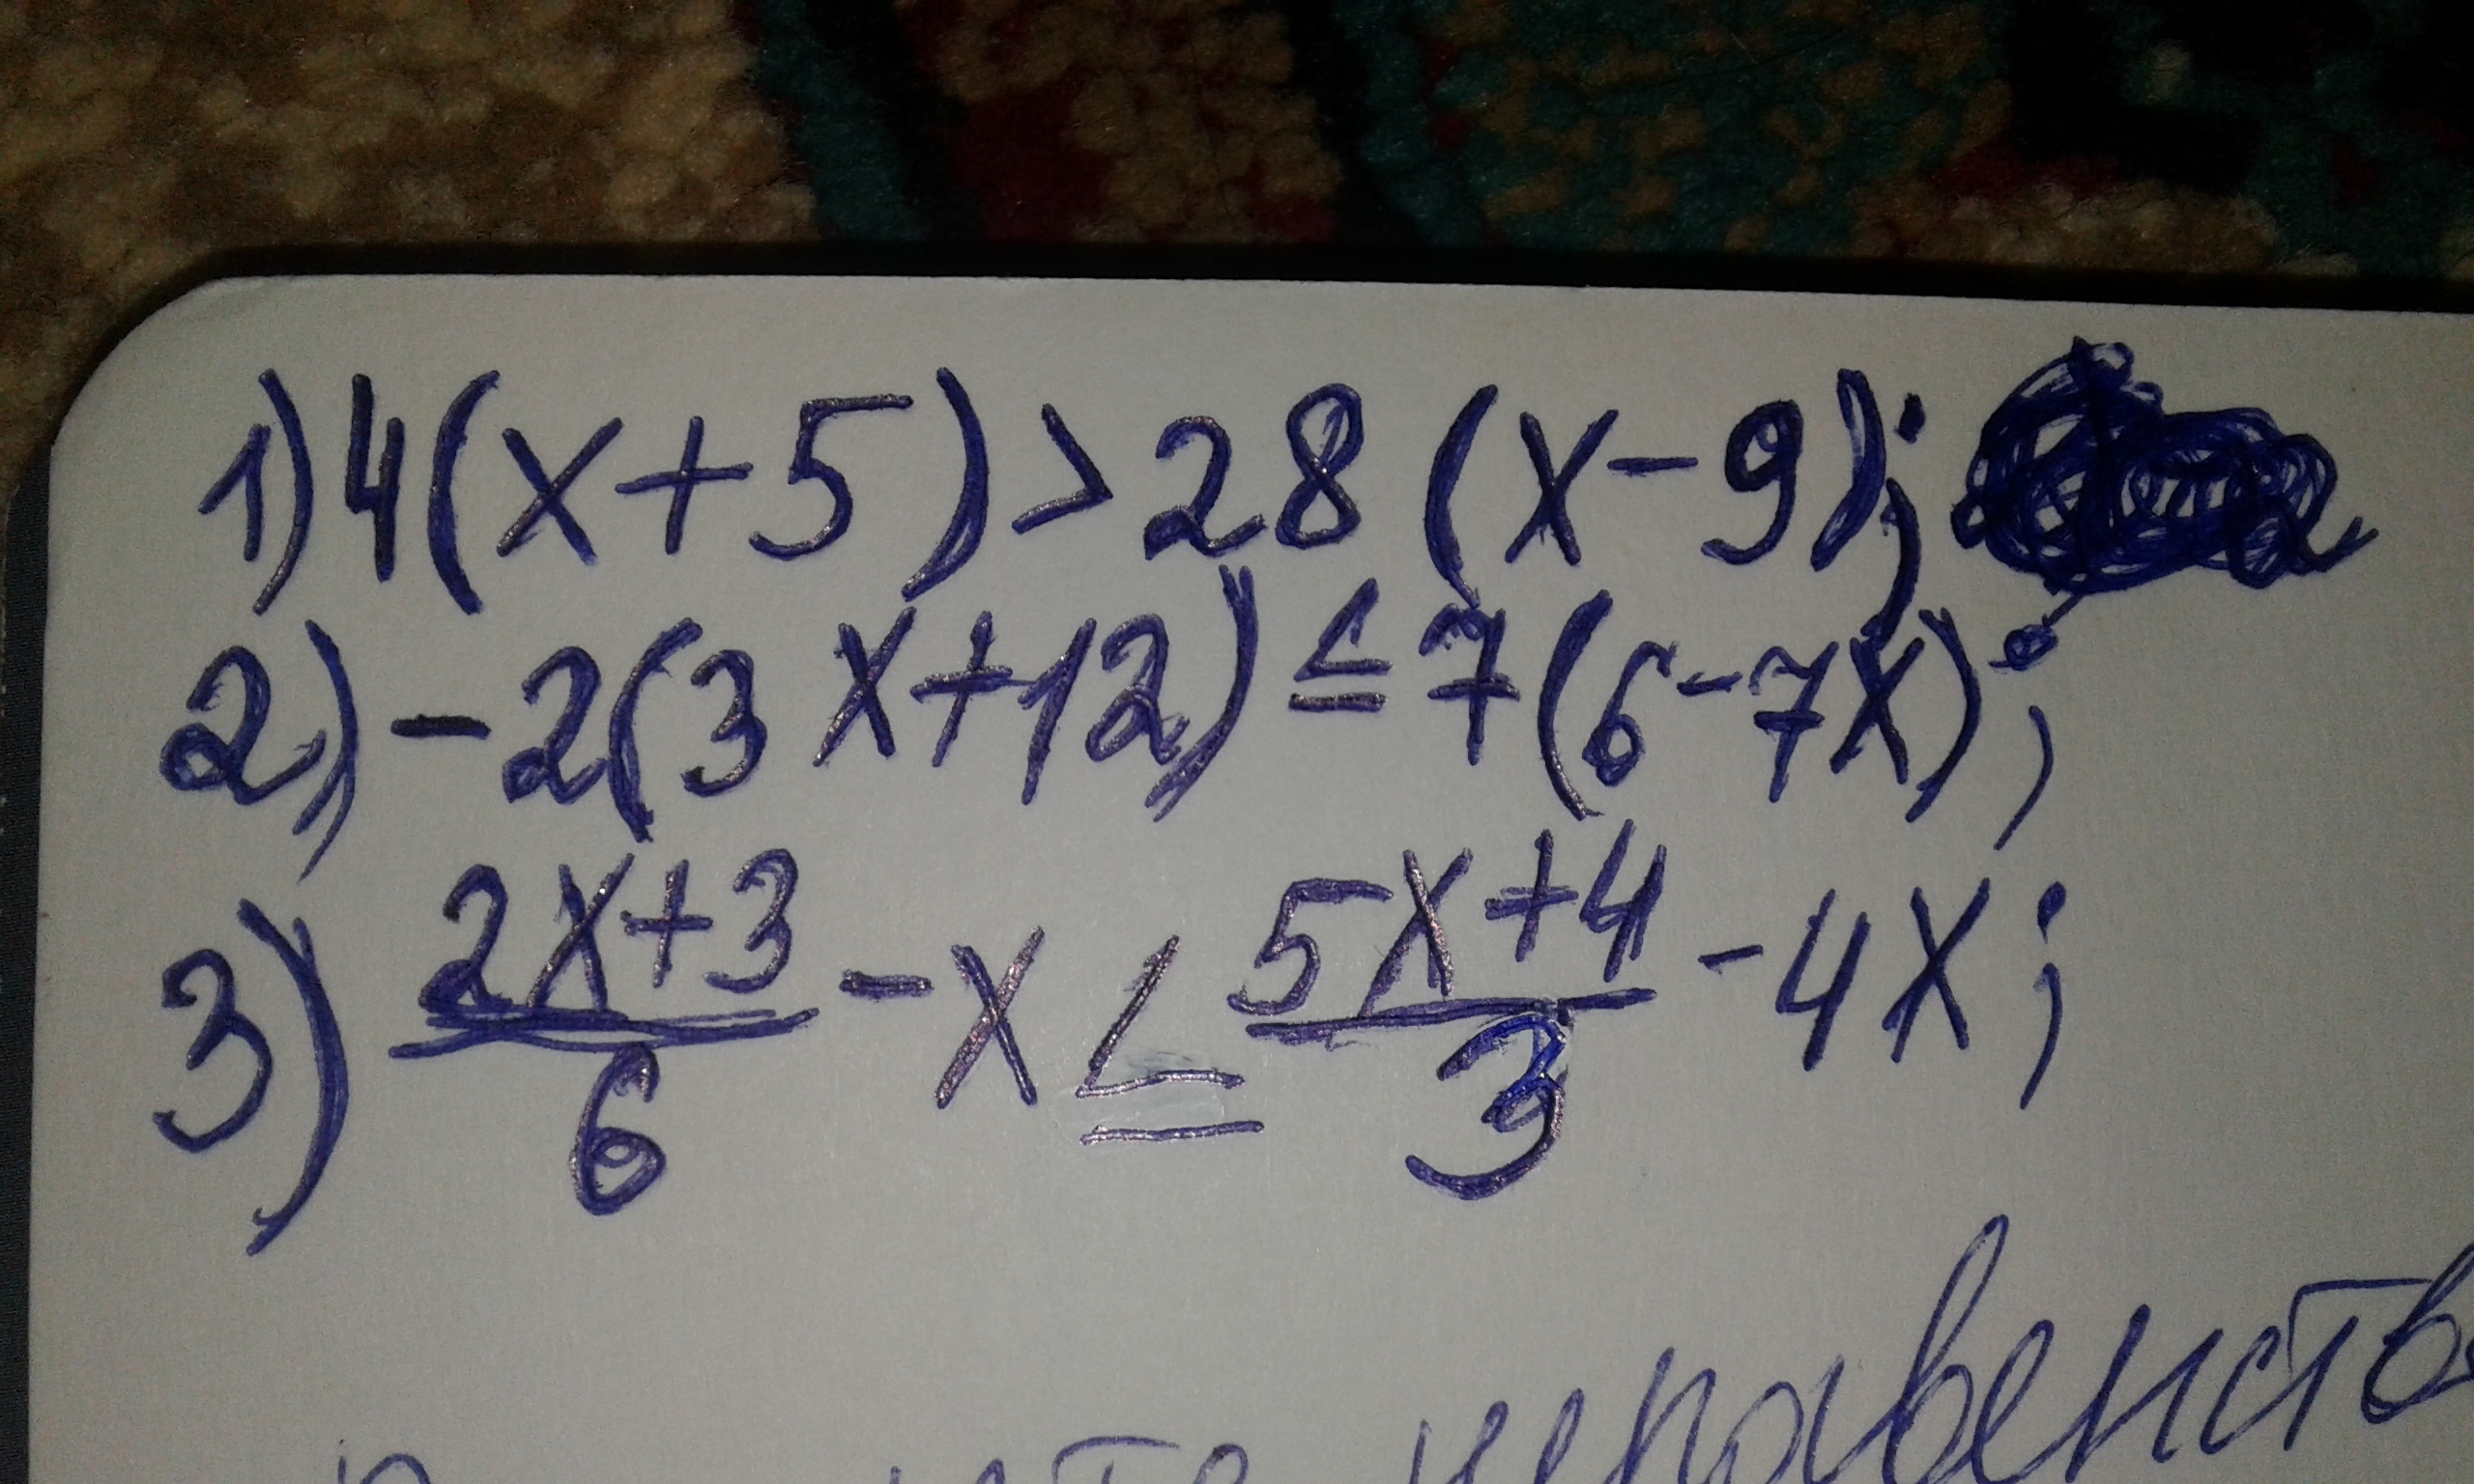 1) 4(x+5)>28(x-9);
2) -2(3x+12)≤7(6-7x);
3) \frac{2x+3}{6}-x≤\frac{5x+4}{3}-4x;